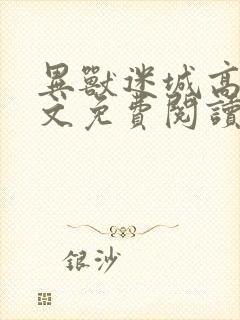 異獸迷城高
文免費閱讀
銀沙